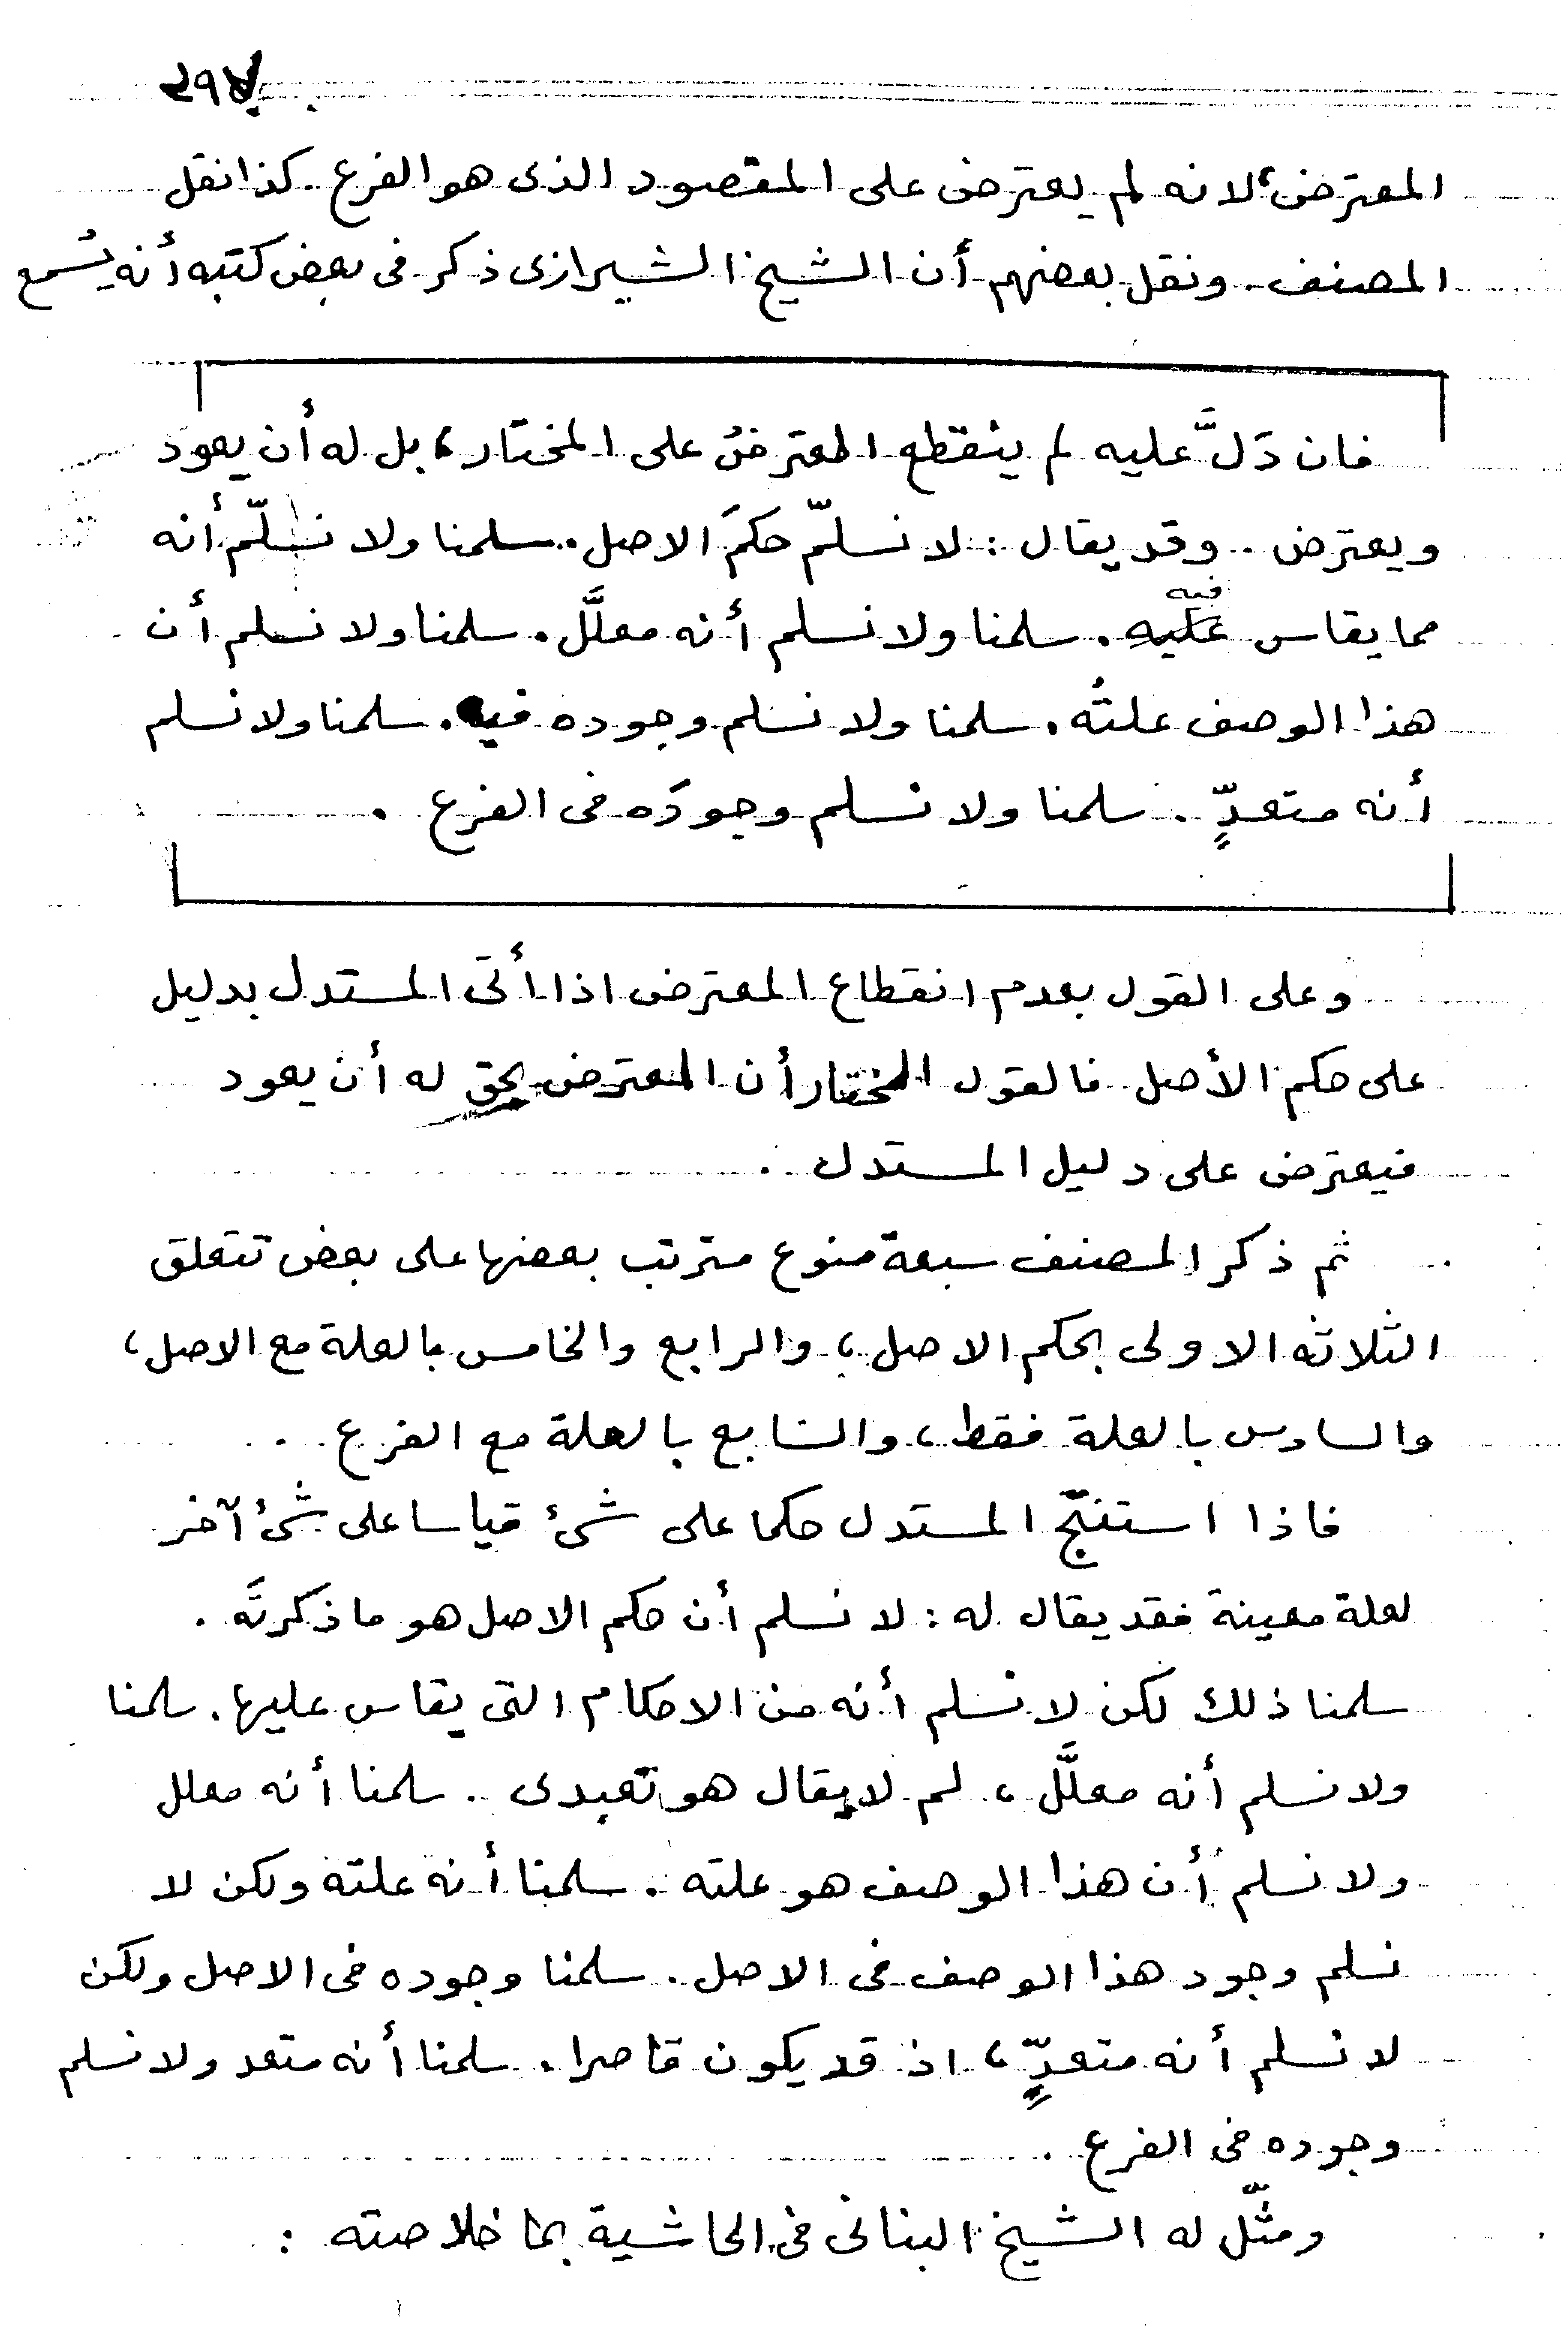 المعترض، لانه لم يعترض على المقصود الذى هو الفرع . كذا نقل
المصنف . ونقل بعضهم أن الشيخ الشيرازى ذكر فى بعض كتبه أنه يُسمع
فان دَلَّ عليه لم ينقطع المعترضُ على المختار، بل له أن يعود
ويعترض . وقد يقال : لا نسلّم حكمَ الاصل . سلمنا ولا نسلّم أنه
مما يقاس فيه . سلمنا ولا نسلم أنه معلَّل . سلمنا ولا نسلم أن
هذا الوصف علتُه . سلمنا ولا نسلم وجوده فيه . سلمنا ولا نسلم
أنه متعدٍّ . سلمنا ولا نسلم وجودَه فى الفرع .
وعلى القول بعدم انقطاع المعترض اذا أتى المستدل بدليل
على حكم الأصل فالقول المختار أن المعترض يحق له أن يعود
فيعترض على دليل المستدل .
ثم ذكر المصنف سبعة منوع مترتب بعضها على بعض تتعلق
الثلاثه الاولى بحكم الاصل ، والرابع والخامس بالعلة مع الاصل ،
والسادس بالعلة فقط ، والسابع بالعلة مع الفرع .
فاذا استنتج المستدل حكما على شئ قياسا على شئ آخر
لعلة معينة فقد يقال له : لا نسلم أن حكم الاصل هو ما ذكرتَه .
سلمنا ذلك لكن لا نسلم أنه من الاحكام التى يقاس عليها . سلمنا
ولا نسلم أنه معلَّل ، لم لا يقال هو تعبدى . سلمنا أنه معلل
ولا نسلم أن هذا الوصف هو علته . سلمنا أنه علته ولكن لا
نسلم وجود هذا الوصف فى الاصل . سلمنا وجوده فى الاصل ولكن
لا نسلم أنه متعدٍّ ، اذ قد يكون قاصرا . سلمنا أنه متعد ولا نسلم
وجوده فى الفرع .
ومثّل له الشيخ البنانى فى الحاشية بما خلاصته :